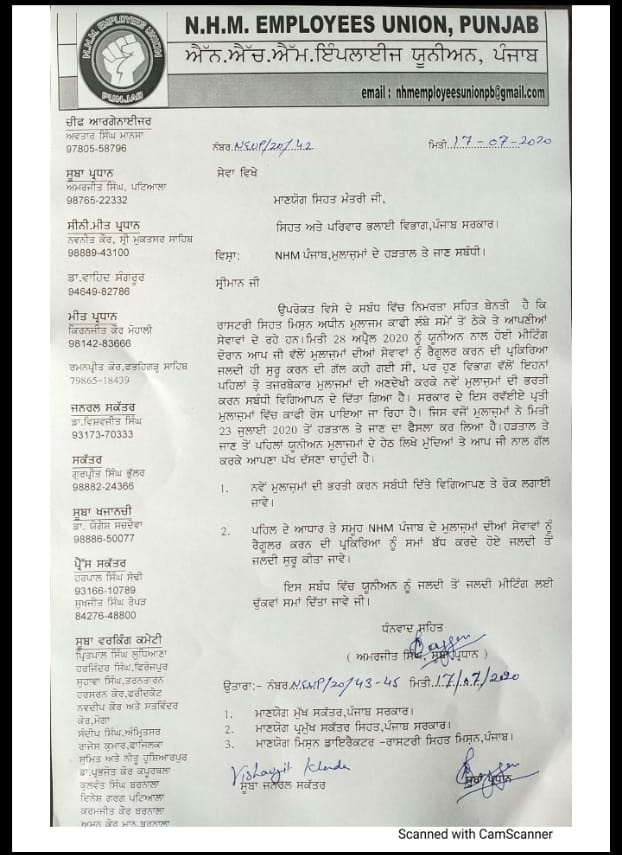 N.H.M. EMPLOYEES UNION
PUNJAB
N.H.M. EMPLOYEES UNION, PUNJAB
ਐੱਨ.ਐੱਚ.ਐੱਮ.ਇੰਪਲਾਈਜ ਯੂਨੀਅਨ, ਪੰਜਾਬ
email : nhmemployeesunionpb@gmail.com
ਚੀਫ ਆਰਗੇਨਾਈਜਰ
ਅਵਤਾਰ ਸਿੰਘ ਮਾਨਸਾ
97805-58796
ਸੂਬਾ ਪ੍ਰਧਾਨ
ਅਮਰਜੀਤ ਸਿੰਘ, ਪਟਿਆਲਾ
98765-22332
ਸੀਨੀ.ਮੀਤ ਪ੍ਰਧਾਨ
ਨਵਨੀਤ ਕੌਰ, ਸ੍ਰੀ ਮੁਕਤਸਰ ਸਾਹਿਬ
98889-43100
ਡਾ.ਵਾਹਿਦ ਸੰਗਰੂਰ
94649-82786
ਮੀਤ ਪ੍ਰਧਾਨ
ਕਿਰਨਜੀਤ ਕੌਰ ਮੋਹਾਲੀ
98142-83666
ਰਮਨਪ੍ਰੀਤ ਕੌਰ,ਫਤਹਿਗੜ੍ਹ ਸਾਹਿਬ
79865-18439
ਜਨਰਲ ਸਕੱਤਰ
ਡਾ.ਵਿਸ਼ਵਜੀਤ ਸਿੰਘ
93173-70333
ਸਕੱਤਰ
ਗੁਰਪ੍ਰੀਤ ਸਿੰਘ ਭੁੱਲਰ
98882-24366
ਸੂਬਾ ਖਜਾਨਚੀ
ਡਾ. ਯੋਗੇਸ਼ ਸਚਦੇਵਾ
98886-50077
ਪ੍ਰੈੱਸ ਸਕੱਤਰ
ਹਰਪਾਲ ਸਿੰਘ ਸੋਢੀ
93166-10789
ਸੁਖਜੀਤ ਸਿੰਘ ਰੋਪੜ
84276-48800
ਸੂਬਾ ਵਰਕਿੰਗ ਕਮੇਟੀ
ਪ੍ਰਿਤਪਾਲ ਸਿੰਘ ਲੁਧਿਆਣਾ
ਹਰਜਿੰਦਰ ਸਿੰਘ,ਫਿਰੋਜਪੁਰ
ਸੁਹਾਵਾ ਸਿੰਘ,ਤਰਨਤਾਰਨ
ਹਰਸਰਨ ਕੌਰ,ਫਰੀਦਕੋਟ
ਨਵਦੀਪ ਕੌਰ ਅਤੇ ਸਤਵਿੰਦਰ
ਕੌਰ,ਮੋਗਾ
ਸੰਦੀਪ ਸਿੰਘ,ਅੰਮ੍ਰਿਤਸਰ
ਰਾਜੇਸ ਕੁਮਾਰ,ਫਾਜਿਲਕਾ
ਸੁਮਿਤ ਅਤੇ ਨੀਤੂ ਹੁਸ਼ਿਆਰਪੁਰ
ਡਾ.ਪ੍ਰਭਜੋਤ ਕੌਰ ਕਪੂਰਥਲਾ
ਕੁਲਵੰਤ ਸਿੰਘ ਬਰਨਾਲਾ
ਦਿਨੇਸ਼ ਗਰਗ ਪਟਿਆਲਾ
ਕਰਮਜੀਤ ਕੌਰ ਬਰਨਾਲਾ
ਅਮਨ ਕੌਰ ਮਾਨ,ਬਰਨਾਲਾ
ਨੰਬਰ.NEUP/20/42 ਮਿਤੀ..17-07-2020
ਸੇਵਾ ਵਿਖੇ
ਮਾਣਯੋਗ ਸਿਹਤ ਮੰਤਰੀ ਜੀ,
ਸਿਹਤ ਅਤੇ ਪਰਿਵਾਰ ਭਲਾਈ ਵਿਭਾਗ,ਪੰਜਾਬ ਸਰਕਾਰ।
ਵਿਸ਼ਾ: NHM ਪੰਜਾਬ,ਮੁਲਾਜ਼ਮਾਂ ਦੇ ਹੜਤਾਲ ਤੇ ਜਾਣ ਸਬੰਧੀ।
ਸ੍ਰੀਮਾਨ ਜੀ
ਉਪਰੋਕਤ ਵਿਸੇ ਦੇ ਸਬੰਧ ਵਿੱਚ ਨਿਮਰਤਾ ਸਹਿਤ ਬੇਨਤੀ ਹੈ ਕਿ
ਰਾਸਟਰੀ ਸਿਹਤ ਮਿਸ਼ਨ ਅਧੀਨ ਮੁਲਾਜਮ ਕਾਫੀ ਲੰਬੇ ਸਮੇਂ ਤੋਂ ਠੇਕੇ ਤੇ ਆਪਣੀਆਂ
ਸੇਵਾਵਾਂ ਦੇ ਰਹੇ ਹਨ।ਮਿਤੀ 28 ਅਪ੍ਰੈਲ 2020 ਨੂੰ ਯੂਨੀਅਨ ਨਾਲ ਹੋਈ ਮੀਟਿੰਗ
ਦੌਰਾਨ ਆਪ ਜੀ ਵੱਲੋਂ ਮੁਲਾਜਮਾਂ ਦੀਆਂ ਸੇਵਾਵਾਂ ਨੂੰ ਰੈਗੂਲਰ ਕਰਨ ਦੀ ਪ੍ਰਕਿਰਿਆ
ਜਲਦੀ ਹੀ ਸ਼ੁਰੂ ਕਰਨ ਦੀ ਗੱਲ ਕਹੀ ਗਈ ਸੀ, ਪਰ ਹੁਣ ਵਿਭਾਗ ਵੱਲੋਂ ਇਹਨਾਂ
ਪਹਿਲਾਂ ਤੋਂ ਤਜਰਬੇਕਾਰ ਮੁਲਾਜਮਾਂ ਦੀ ਅਣਦੇਖੀ ਕਰਕੇ ਨਵੇਂ ਮੁਲਾਜਮਾਂ ਦੀ ਭਰਤੀ
ਕਰਨ ਸਬੰਧੀ ਵਿਗਿਆਪਨ ਦੇ ਦਿੱਤਾ ਗਿਆ ਹੈ। ਸਰਕਾਰ ਦੇ ਇਸ ਰਵੱਈਏ ਪ੍ਰਤੀ
ਮੁਲਾਜ਼ਮਾਂ ਵਿੱਚ ਕਾਫੀ ਰੋਸ ਪਾਇਆ ਜਾ ਰਿਹਾ ਹੈ। ਜਿਸ ਵਜੋਂ ਮੁਲਾਜਮਾਂ ਨੇ ਮਿਤੀ
23 ਜੁਲਾਈ 2020 ਤੋਂ ਹੜਤਾਲ ਤੇ ਜਾਣ ਦਾ ਫੈਸਲਾ ਕਰ ਲਿਆ ਹੈ।ਹੜਤਾਲ ਤੇ
ਜਾਣ ਤੋਂ ਪਹਿਲਾਂ ਯੂਨੀਅਨ ਮੁਲਾਜਮਾਂ ਦੇ ਹੇਠ ਲਿਖੇ ਮੁੱਦਿਆਂ ਤੇ ਆਪ ਜੀ ਨਾਲ ਗੱਲ
ਕਰਕੇ ਆਪਣਾ ਪੱਖ ਦੱਸਣਾ ਚਾਹੁੰਦੀ ਹੈ।
1. ਨਵੇਂ ਮੁਲਾਜ਼ਮਾਂ ਦੀ ਭਰਤੀ ਕਰਨ ਸਬੰਧੀ ਦਿੱਤੇ ਵਿਗਿਆਪਣ ਤੇ ਰੋਕ ਲਗਾਈ
ਜਾਵੇ।
2. ਪਹਿਲ ਦੇ ਆਧਾਰ ਤੇ ਸਮੂਹ NHM ਪੰਜਾਬ ਦੇ ਮੁਲਾਜ਼ਮਾਂ ਦੀਆਂ ਸੇਵਾਵਾਂ ਨੂੰ
ਰੈਗੂਲਰ ਕਰਨ ਦੀ ਪ੍ਰਕਿਰਿਆ ਨੂੰ ਸਮਾਂ ਬੱਧ ਕਰਦੇ ਹੋਏ ਜਲਦੀ ਤੋਂ
ਜਲਦੀ ਸੁਰੂ ਕੀਤਾ ਜਾਵੇ।
ਇਸ ਸਬੰਧ ਵਿੱਚ ਯੂਨੀਅਨ ਨੂੰ ਜਲਦੀ ਤੋਂ ਜਲਦੀ ਮੀਟਿੰਗ ਲਈ
ਢੁੱਕਵਾਂ ਸਮਾਂ ਦਿੱਤਾ ਜਾਵੇ ਜੀ।
ਧੰਨਵਾਦ ਸਹਿਤ
( ਅਮਰਜੀਤ ਸਿੰਘ, ਸੂਬਾ ਪ੍ਰਧਾਨ )
ਉਤਾਰਾ:- ਨੰਬਰ.NEUP/20/43-45 ਮਿਤੀ..17/07/2020
1. ਮਾਣਯੋਗ ਮੁੱਖ ਸਕੱਤਰ,ਪੰਜਾਬ ਸਰਕਾਰ।
2. ਮਾਣਯੋਗ ਪ੍ਰਮੁੱਖ ਸਕੱਤਰ ਸਿਹਤ,ਪੰਜਾਬ ਸਰਕਾਰ।
3. ਮਾਣਯੋਗ ਮਿਸ਼ਨ ਡਾਇਰੈਕਟਰ -ਰਾਸਟਰੀ ਸਿਹਤ ਮਿਸ਼ਨ,ਪੰਜਾਬ।
ਸੂਬਾ ਜਨਰਲ ਸਕੱਤਰ ਸੂਬਾ ਪ੍ਰਧਾਨ
Scanned with CamScanner